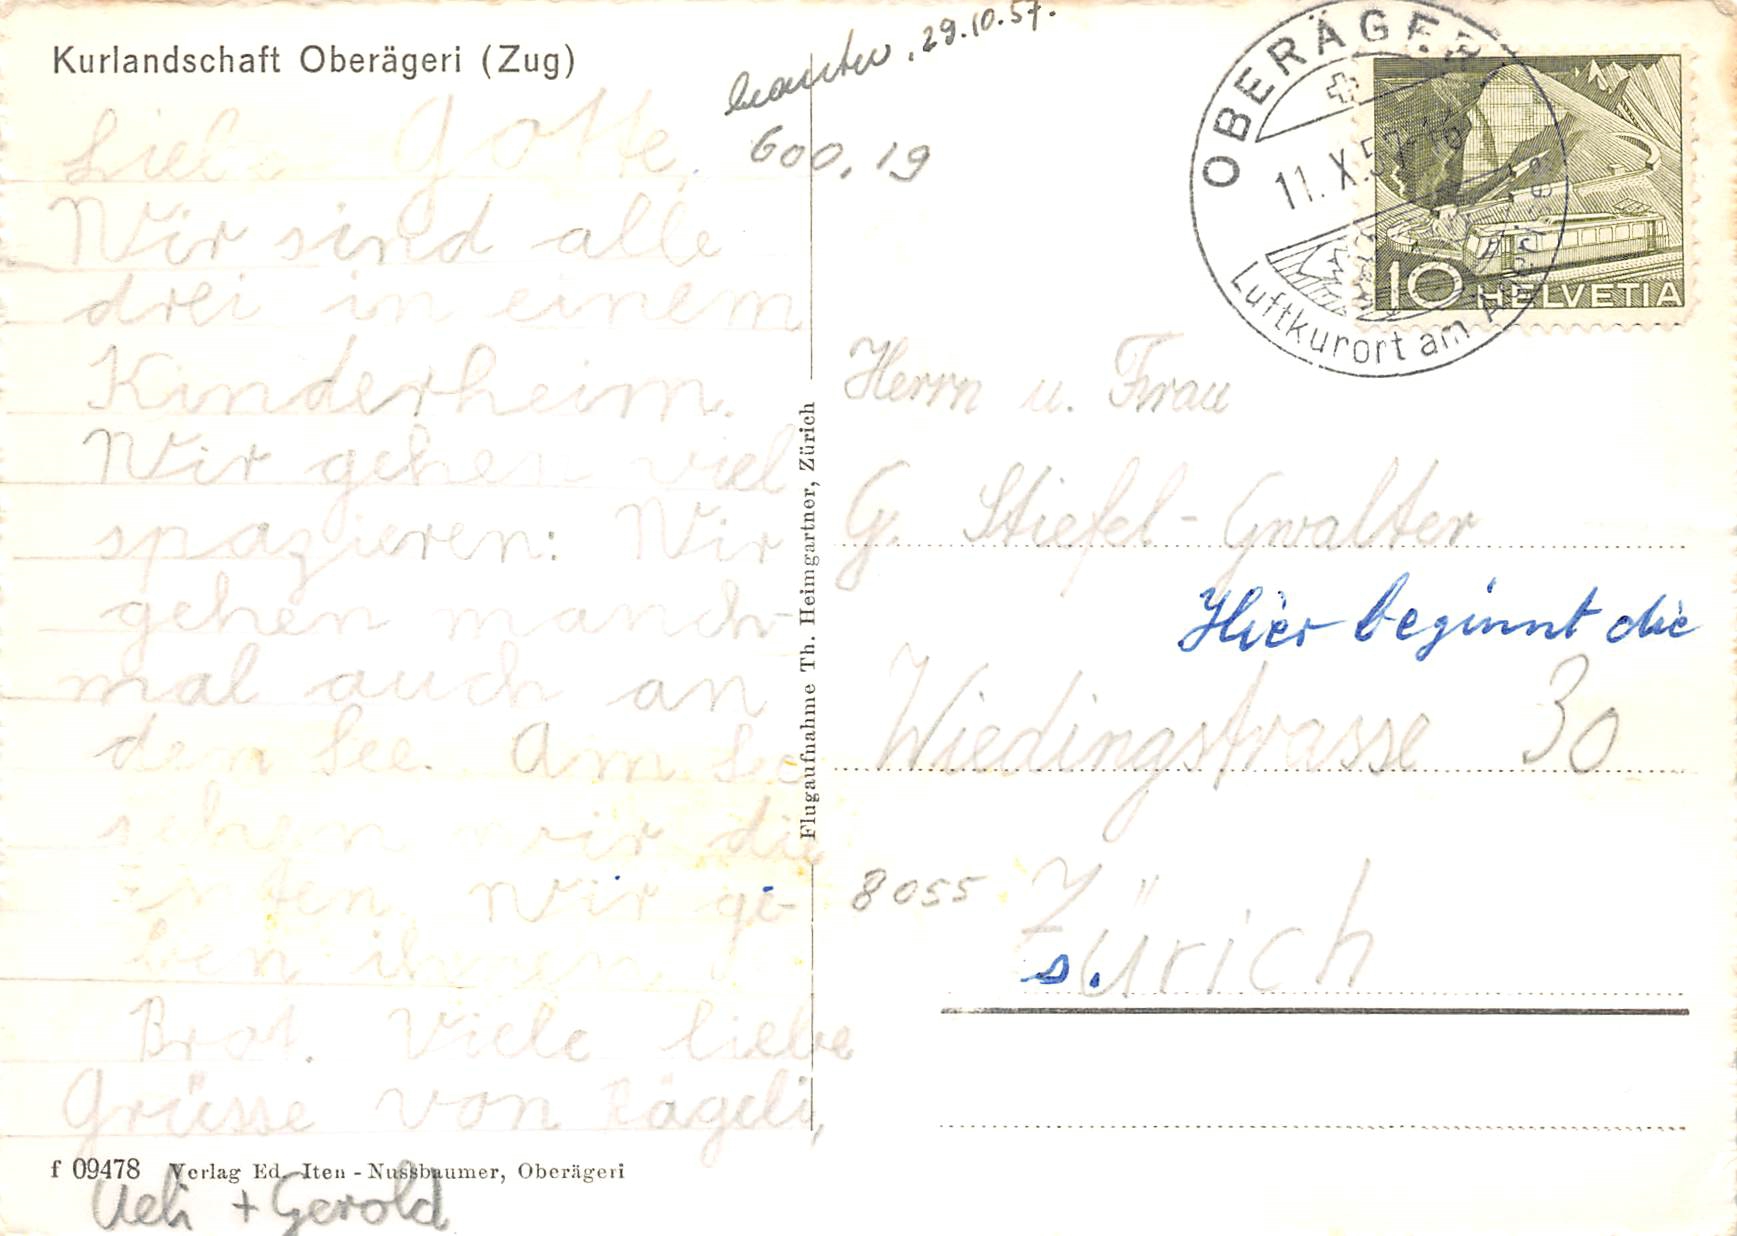 Kurlandschaft Oberägeri (Zug)
29.10.57.
600.19
Liebe Gotte,
Wir sind alle
drei in einem
Kinderheim.
Wir gehen viel
spazieren: Wir
gehen manch-
mal auch an
den See. Am See
sehen wir die
Enten. Wir ge-
ben ihnen
Brot. Viele liebe
Grüsse von Rägeli,
Ueli + Gerold
f 09478 Verlag Ed. Iten - Nussbaumer, Oberägeri
Flugaufnahme Th. Heimgartner, Zürich
OBERÄGERI
11. X. 57-16
Luftkurort am Ägerisee
10 HELVETIA
Herrn u. Frau
G. Stiefel-Gwalter
Hier beginnt die
Wiedingstrasse 30
8055 Zürich
s.